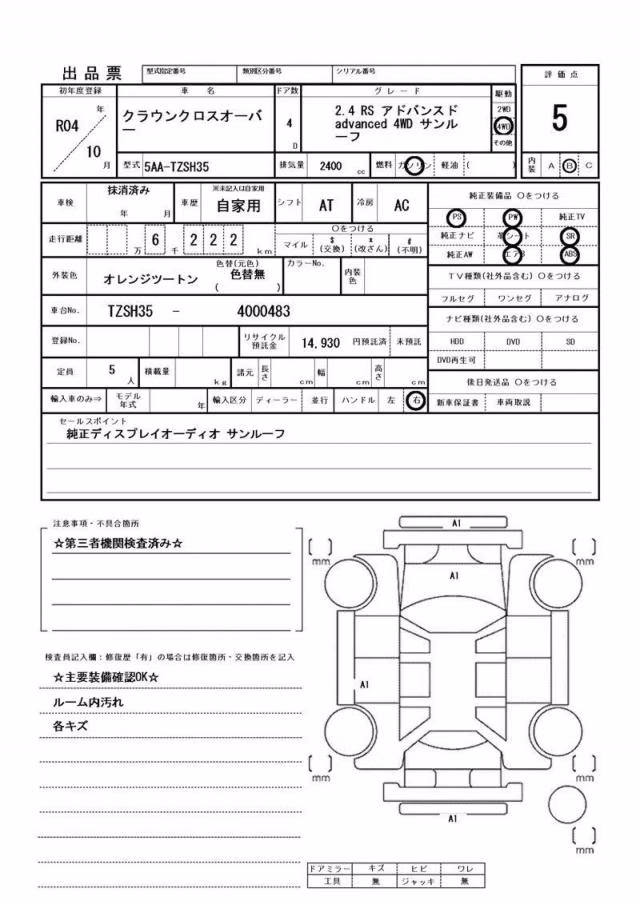 出品票
型式指定番号
類別区分番号
シリアル番号
評価点
5
内装 A B C
初年度登録
車名
ドア数
グレード
駆動
R04 年
10 月
クラウンクロスオーバ
ー
4 D
2.4 RS アドバンスド
advanced 4WD サンル
ーフ
2WD
4WD
その他
型式 5AA-TZSH35
排気量 2400 cc
燃料 ガソリン 軽油 ( )
車検 抹消済み
年 月
車歴
※未記入は自家用
自家用
シフト AT
冷房 AC
走行距離 万 6 千 2 2 2 km
○をつける
マイル
$ (交換)
* (改ざん)
# (不明)
外装色 オレンジツートン
色替(元色)
色替無
( )
カラーNo.
内装色
車台No. TZSH35 - 4000483
登録No.
リサイクル預託金 14,930 円預託済 未預託
定員 5 人
積載量 kg
諸元 長さ cm 幅 cm 高さ cm
輸入車のみ⇒
モデル年式 年
輸入区分 ディーラー 並行
ハンドル 左 右
純正装備品 ○をつける
PS PW 純正TV
純正ナビ 革シート SR
純正AW エアB ABS
TV種類(社外品含む) ○をつける
フルセグ ワンセグ アナログ
ナビ種類(社外品含む) ○をつける
HDD DVD SD
DVD再生可
後日発送品 ○をつける
新車保証書 車両取説
セールスポイント
純正ディスプレイオーディオ サンルーフ
注意事項・不具合箇所
☆第三者機関検査済み☆
検査員記入欄：修復歴「有」の場合は修復箇所・交換箇所を記入
☆主要装備確認OK☆
ルーム内汚れ
各キズ
A1
[ ] mm
[ ] mm
A1
A1
[ ] mm
[ ] mm
A1
[ ] mm
ドアミラー キズ ヒビ ワレ
工具 無 ジャッキ 無